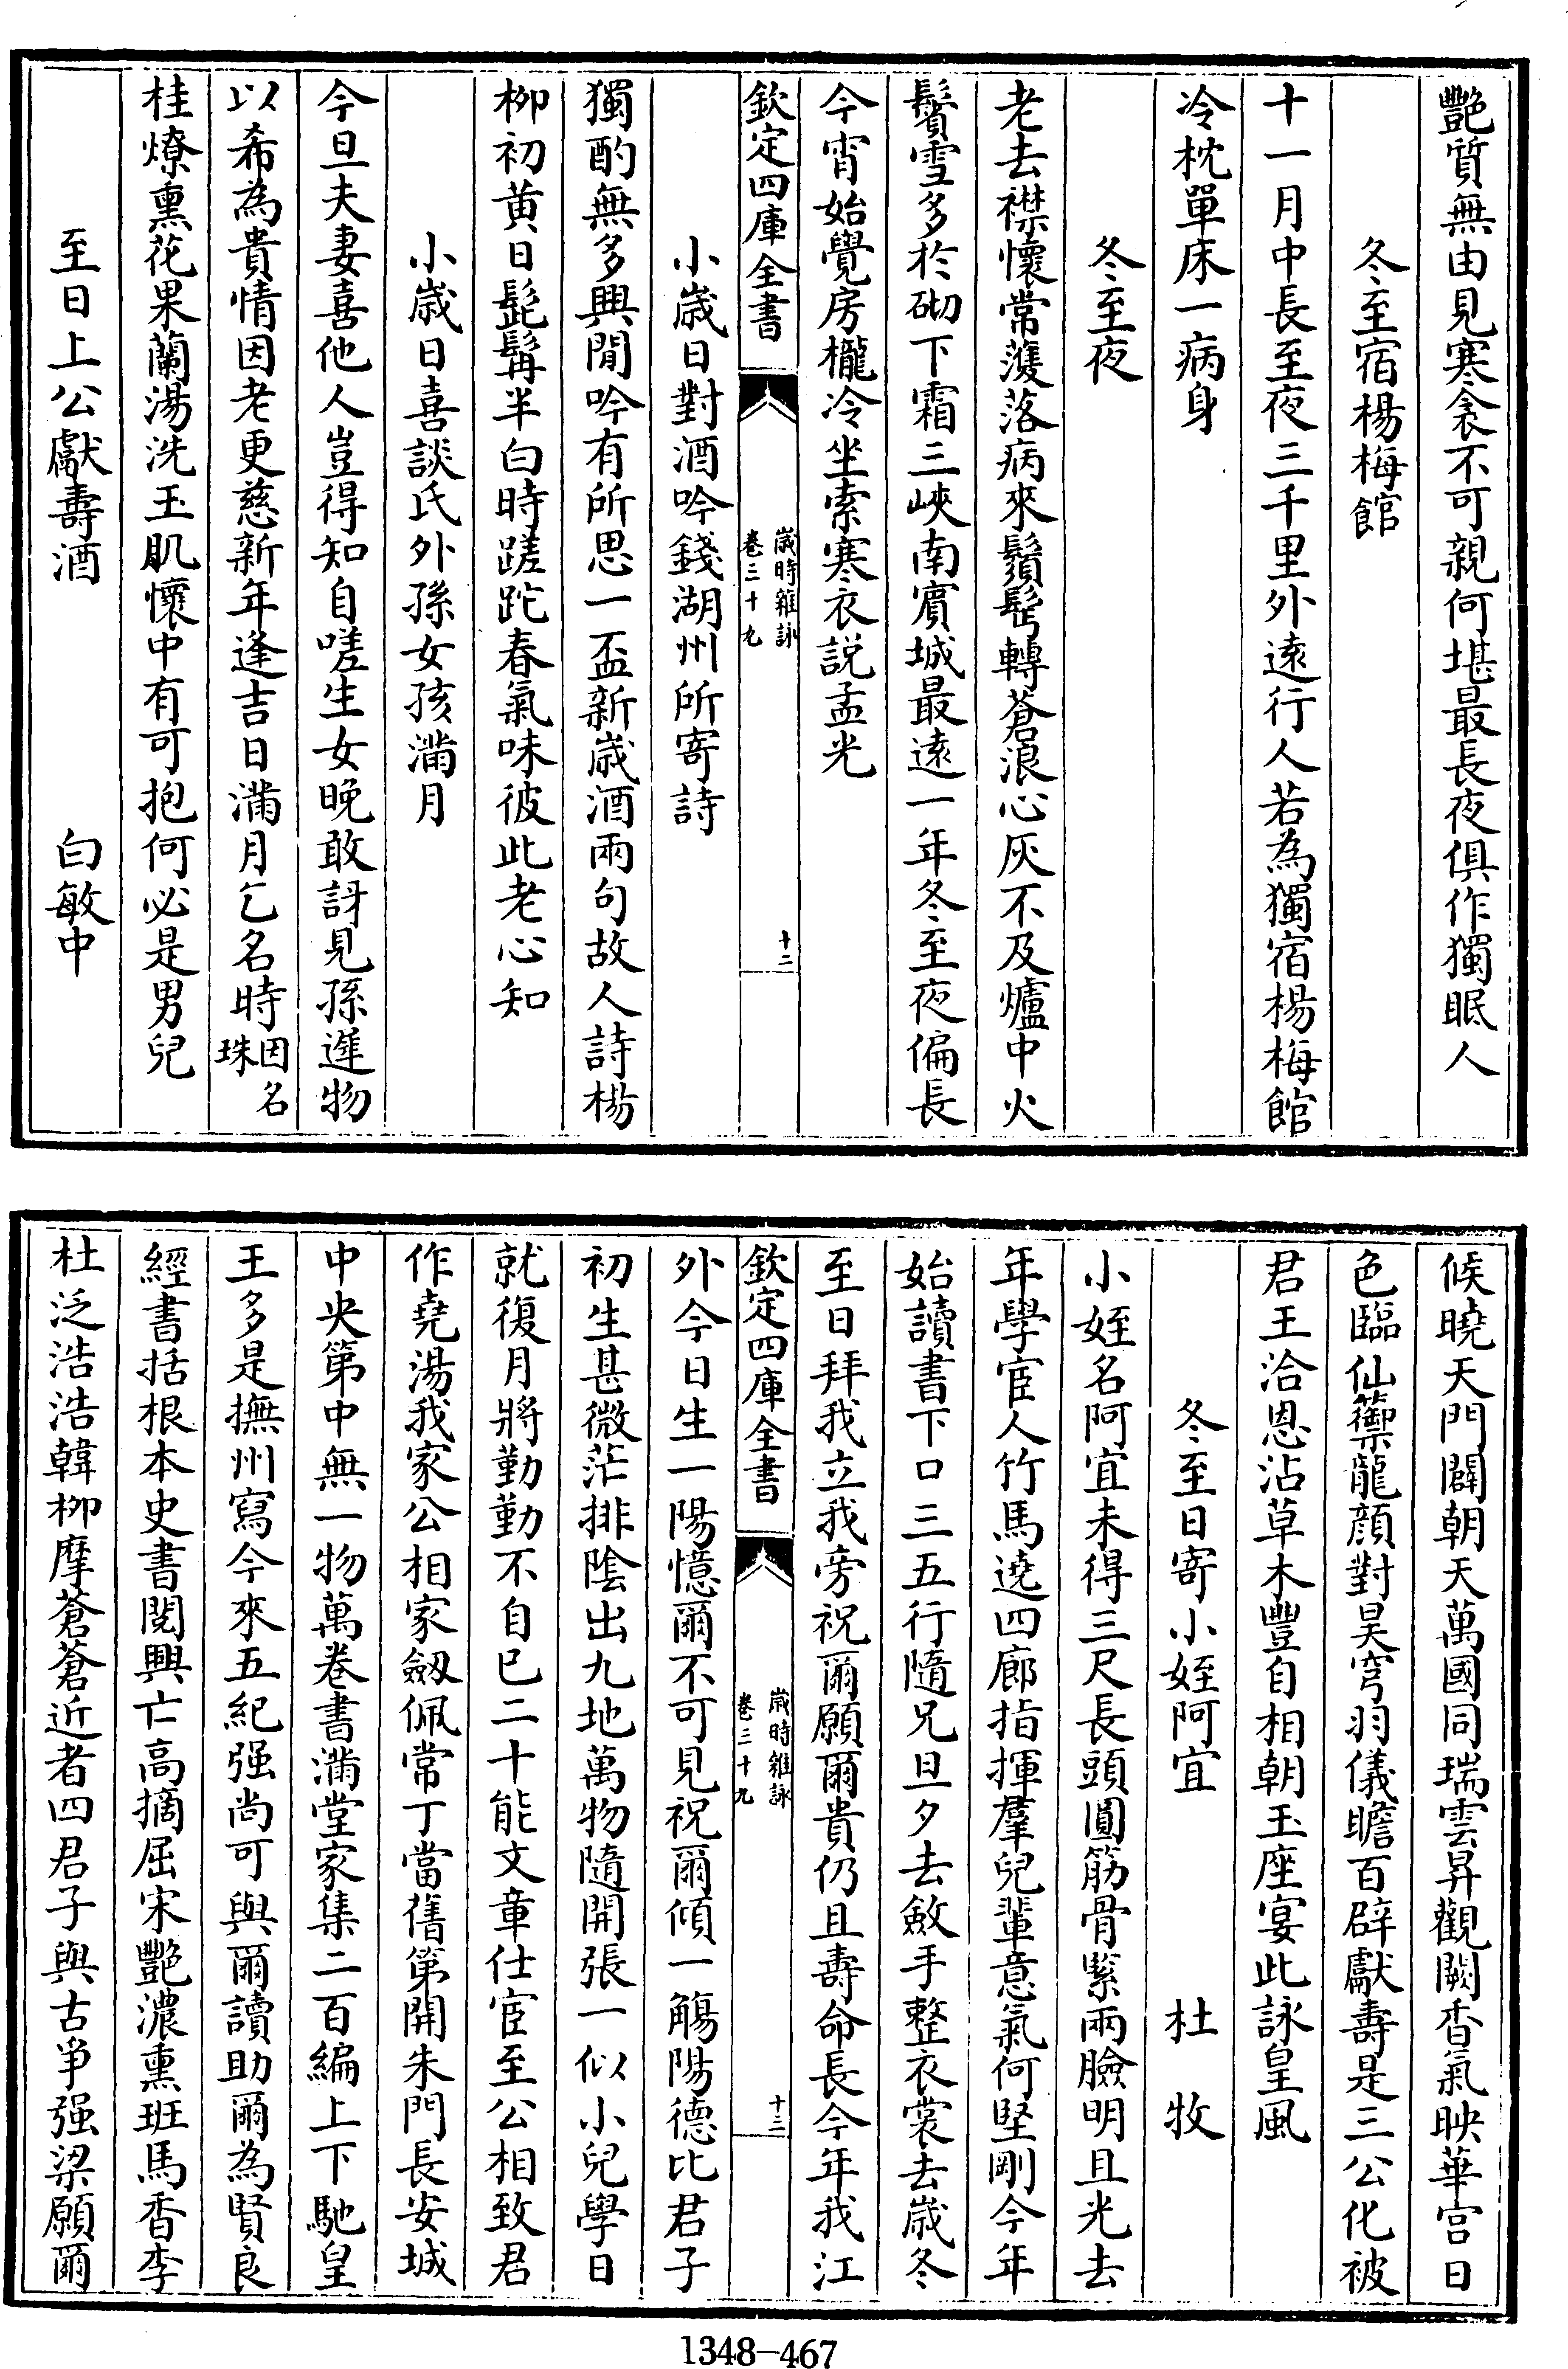 艷質無由見寒衾不可親何堪最長夜俱作獨眠人
冬至宿楊梅館
十一月中長至夜三千里外逺行人若為獨宿楊梅館
冷枕單床一病身
冬至夜
老去襟懷常濩落病來鬚鬢轉蒼浪心灰不及爐中火
鬢雪多於砌下霜三峽南賔城最逺一年冬至夜偏長
今宵始覺房櫳冷坐索寒衣説孟光
欽定四庫全書
歲時雜詠
卷三十九
十二
小歲日對酒吟錢湖州所寄詩
獨酌無多興閒吟有所思一盃新歲酒兩句故人詩楊
柳初黄日髭鬚半白時蹉跎春氣味彼此老心知
小歲日喜談氏外孫女孩滿月
今旦夫妻喜他人豈得知自嗟生女晚敢訝見孫遲物
以希為貴情因老更慈新年逢吉日滿月乞名時因名珠
桂燎熏花果蘭湯洗玉肌懷中有可抱何必是男兒
至日上公獻壽酒 白敏中
候曉天門闢朝天萬國同瑞雲昇觀闕香氣映華宫日
色臨仙籞龍顔對昊穹羽儀瞻百辟獻壽是三公化被
君王洽恩沾草木豐自相朝玉座宴此詠皇風
冬至日寄小姪阿宜 杜牧
小姪名阿宜未得三尺長頭圓筋骨緊兩臉明且光去
年學宦人竹馬遶四廊指揮羣兒輩意氣何堅剛今年
始讀書下口三五行隨兄旦夕去斂手整衣裳去歲冬
至日拜我立我旁祝爾願爾貴仍且壽命長今年我江
欽定四庫全書
歲時雜詠
卷三十九
十三
外今日生一陽憶爾不可見祝爾傾一觴陽德比君子
初生甚微茫排隂出九地萬物隨開張一似小兒學日
就復月將勤勤不自已二十能文章仕宦至公相致君
作堯湯我家公相家劔佩常丁當舊第開朱門長安城
中央第中無一物萬巻書滿堂家集二百編上下馳皇
王多是撫州寫今來五紀强尚可與爾讀助爾為賢良
經書括根本史書閱興亡高摘屈宋艷濃熏班馬香李
杜泛浩浩韓柳摩蒼蒼近者四君子與古爭强梁願爾
1348-467